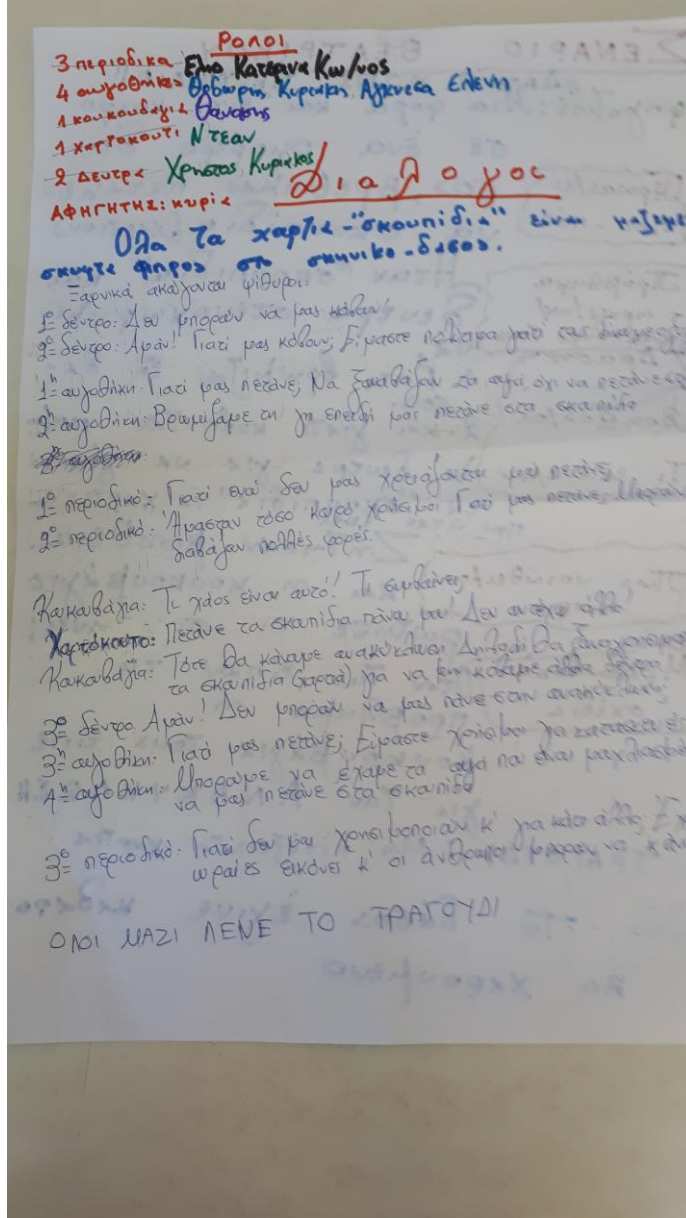 ΡΟΛΟΙ
3 περιοδικα Ελιο Κατερινα Κω/νος
4 αυγοθήκες Θοδωρης Κυριακη Αγκνεσα Ελενη
1 κουκουβαγια Θανασης
1 χαρτοκουτι Ντεαν
2 Δεντρα Χρηστος Κυριακος
ΑΦΗΓΗΤΗΣ: κυρια
Διαλογος
Ολα τα χαρτια-"σκουπιδια" είναι
μπρος στο σκηνικο-δασος.
Ξαφνικά ακούγονται ψίθυροι.
1º δέντρο: Δεν μπορούν να μας κόβουν!
2º δέντρο: Αμάν! Γιατί μας κόβουν; Είμαστε γιατί τους
1η αυγοθήκη: Γιατί μας πετάνε; Να ξαναβάζουν τα αυγά, όχι να πετάνε
2η αυγοθήκη: Βρωμίζουμε τη γη επειδή μας πετάνε στα σκουπίδια
1º περιοδικό: Γιατί ενώ δεν μας χρειάζονται μας πετάνε;
2º περιοδικό: Ήμασταν τόσο καιρό χρήσιμοι Γιατί μας πετάνε;
διαβάζουν πολλές φορές.
Κουκουβάγια: Τι χάος είναι αυτό! Τι συμβαίνει;
Χαρτόκουτο: Πετάνε τα σκουπίδια πάνω μου! Δεν αντέχω άλλο
Κουκουβάγια: Τότε θα κάνουμε ανακύκλωση Δηλαδή θα
τα σκουπίδια (χαρτιά) για να μην κόβουμε άλλα δέντρα
3º δέντρο Αμάν! Δεν μπορούν να μας πάνε στην ανακύκλωση;
3η αυγοθήκη: Γιατί μας πετάνε; Είμαστε χρήσιμοι για κατασκευές
4η αυγοθήκη: Μπορούμε να έχουμε τα αυγά που είναι
να μας πετάνε στα σκουπίδια
3º περιοδικό: Γιατί δεν μας χρησιμοποιούν κ' για κάτι άλλο;
ωραίες εικόνες κ' οι άνθρωποι μπορούν να
ΟΛΟΙ ΜΑΖΙ ΛΕΝΕ ΤΟ ΤΡΑΓΟΥΔΙ